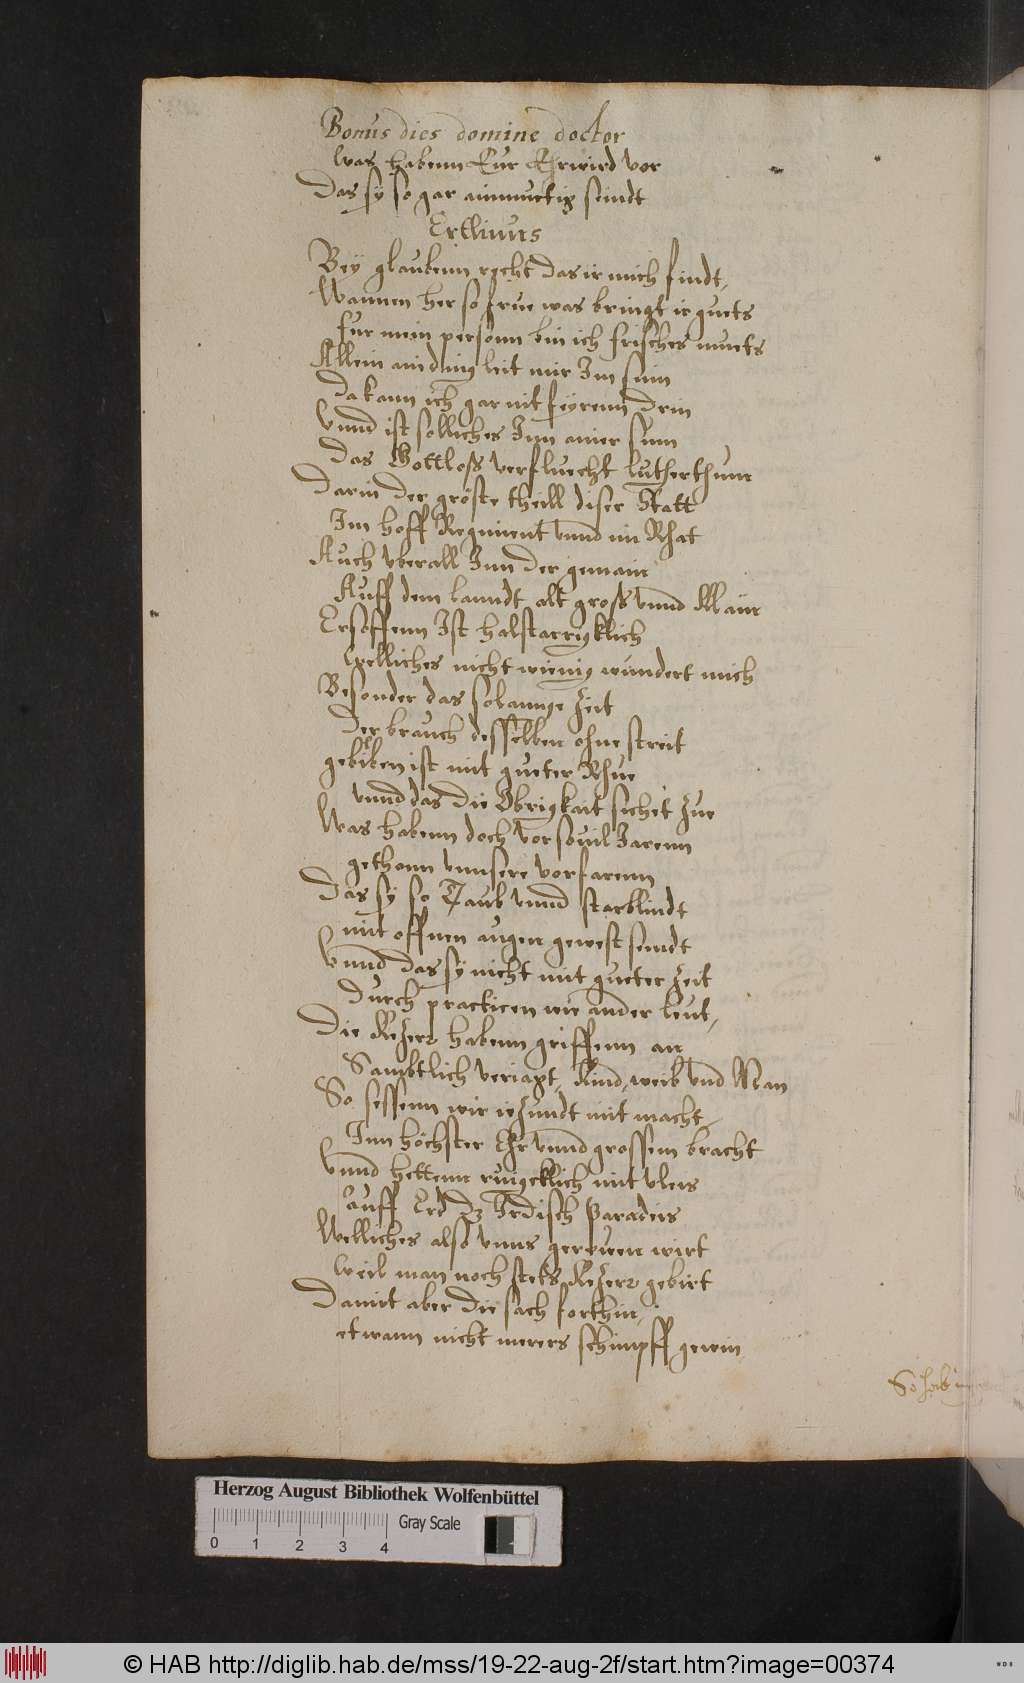 Bonus dies domine doctor
Was habenn Eur Ehrwird vor
Das sÿ so gar ainmuetig seindt
Ertlinus
Beÿ glaubenn recht das ir mich findt,
Wannen her so frue was bringt ir guets
fur mein personn bin ich frisches muets
Allein ain ding leit mir Im sinn
Da kann ich gar nit feÿrenn drin
Vnnd ist solliches Inn ainer Sum
Das Gottloß verfluecht lutherthum
Darin der gröste theill diser Statt
Im hoff Regiment vnnd im Rhat
Auch vberall Inn der gemain
Auff dem lanndt alt groß vnnd Klain
Ersoffenn Ist halstarrigklich
Welliches nicht wienig wundert mich
Besonder das solannge Zeit
Der brauch desselben ohne streit
gebliben ist mit gueter Rhue
vnnd das die Obrigkait sichet Zue
Was habenn doch vor souil Jarenn
gethonn vnnsere vorfarenn
Das sÿ so Taub vnnd starblindt
mit offnen augen gewest seindt
Vnnd das sÿ nicht mit gueter Zeit
Durch practicen wie ander leut,
Die Kezer habenn griffenn an
Sambtlich veriagt, Kind, weib vnd Man
So sessenn wir iezundt mit macht,
Inn höchster Ehr vnnd grossem bracht
Vnnd hettenn ruigcklich mit vleis
auff Erd dz Irdisch Paradeis
Welliches also vnns gerouen wirt
Weil man noch stets Kezer gebirt
Damit aber die sach forthin,
etwann nicht merers schimpff gewin
So hab
Herzog August Bibliothek Wolfenbüttel
Gray Scale
0 1 2 3 4
© HAB http://diglib.hab.de/mss/19-22-aug-2f/start.htm?image=00374